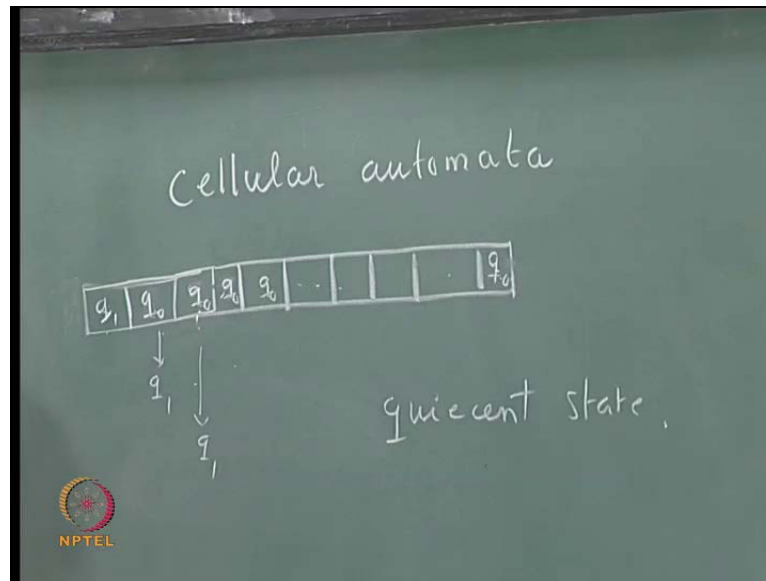 Cellular automata
q₁ q₀ q₀ q₀ q₀ . . . . q₀
q₁
q₁
quiecent state.
NPTEL